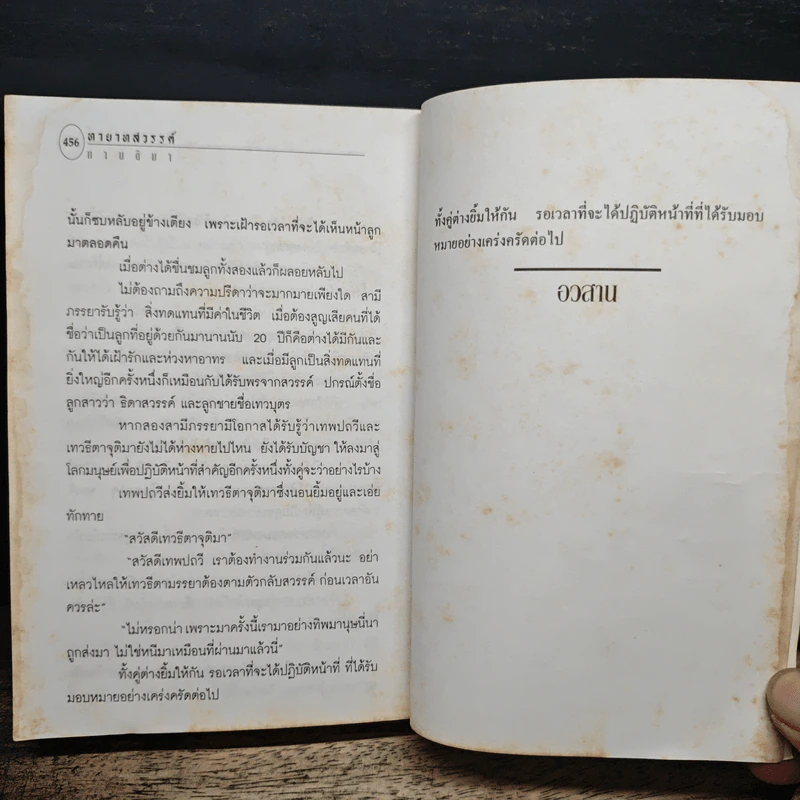 456
ทายาทสวรรค์
กานติมา
นั้นก็ซบหลับอยู่ข้างเตียง เพราะเฝ้ารอเวลาที่จะได้เห็นหน้าลูก
มาตลอดคืน
เมื่อต่างได้ชื่นชมลูกทั้งสองแล้วก็ผลอยหลับไป
ไม่ต้องถามถึงความปรีดาว่าจะมากมายเพียงใด สามี
ภรรยารับรู้ว่า สิ่งทดแทนที่มีค่าในชีวิต เมื่อต้องสูญเสียคนที่ได้
ชื่อว่าเป็นลูกที่อยู่ด้วยกันมานานนับ 20 ปีก็คือต่างได้มีกันและ
กันให้ได้เฝ้ารักและห่วงหาอาทร และเมื่อมีลูกเป็นสิ่งทดแทนที่
ยิ่งใหญ่อีกครั้งหนึ่งก็เหมือนกับได้รับพรจากสวรรค์ ปกรณ์ตั้งชื่อ
ลูกสาวว่า ธิดาสวรรค์ และลูกชายชื่อเทวบุตร
หากสองสามีภรรยามีโอกาสได้รับรู้ว่าเทพปถวีและ
เทวธีตาจุติมายังไม่ได้ห่างหายไปไหน ยังได้รับบัญชา ให้ลงมาสู่
โลกมนุษย์เพื่อปฏิบัติหน้าที่สำคัญอีกครั้งหนึ่งทั้งคู่จะว่าอย่างไรบ้าง
เทพปถวีส่งยิ้มให้เทวธีตาจุติมาซึ่งนอนยิ้มอยู่และเอ่ย
ทักทาย
“สวัสดีเทวธีตาจุติมา”
“สวัสดีเทพปถวี เราต้องทำงานร่วมกันแล้วนะ อย่า
เหลวไหลให้เทวธีตามรรยาต้องตามตัวกลับสวรรค์ ก่อนเวลาอัน
ควรล่ะ”
“ไม่หรอกน่า เพราะมาครั้งนี้เรามาอย่างทิพมานุษนี่นา
ถูกส่งมา ไม่ใช่หนีมาเหมือนที่ผ่านมาแล้วนี่”
ทั้งคู่ต่างยิ้มให้กัน รอเวลาที่จะได้ปฏิบัติหน้าที่ ที่ได้รับ
มอบหมายอย่างเคร่งครัดต่อไป
ทั้งคู่ต่างยิ้มให้กัน รอเวลาที่จะได้ปฏิบัติหน้าที่ที่ได้รับมอบ
หมายอย่างเคร่งครัดต่อไป
อวสาน